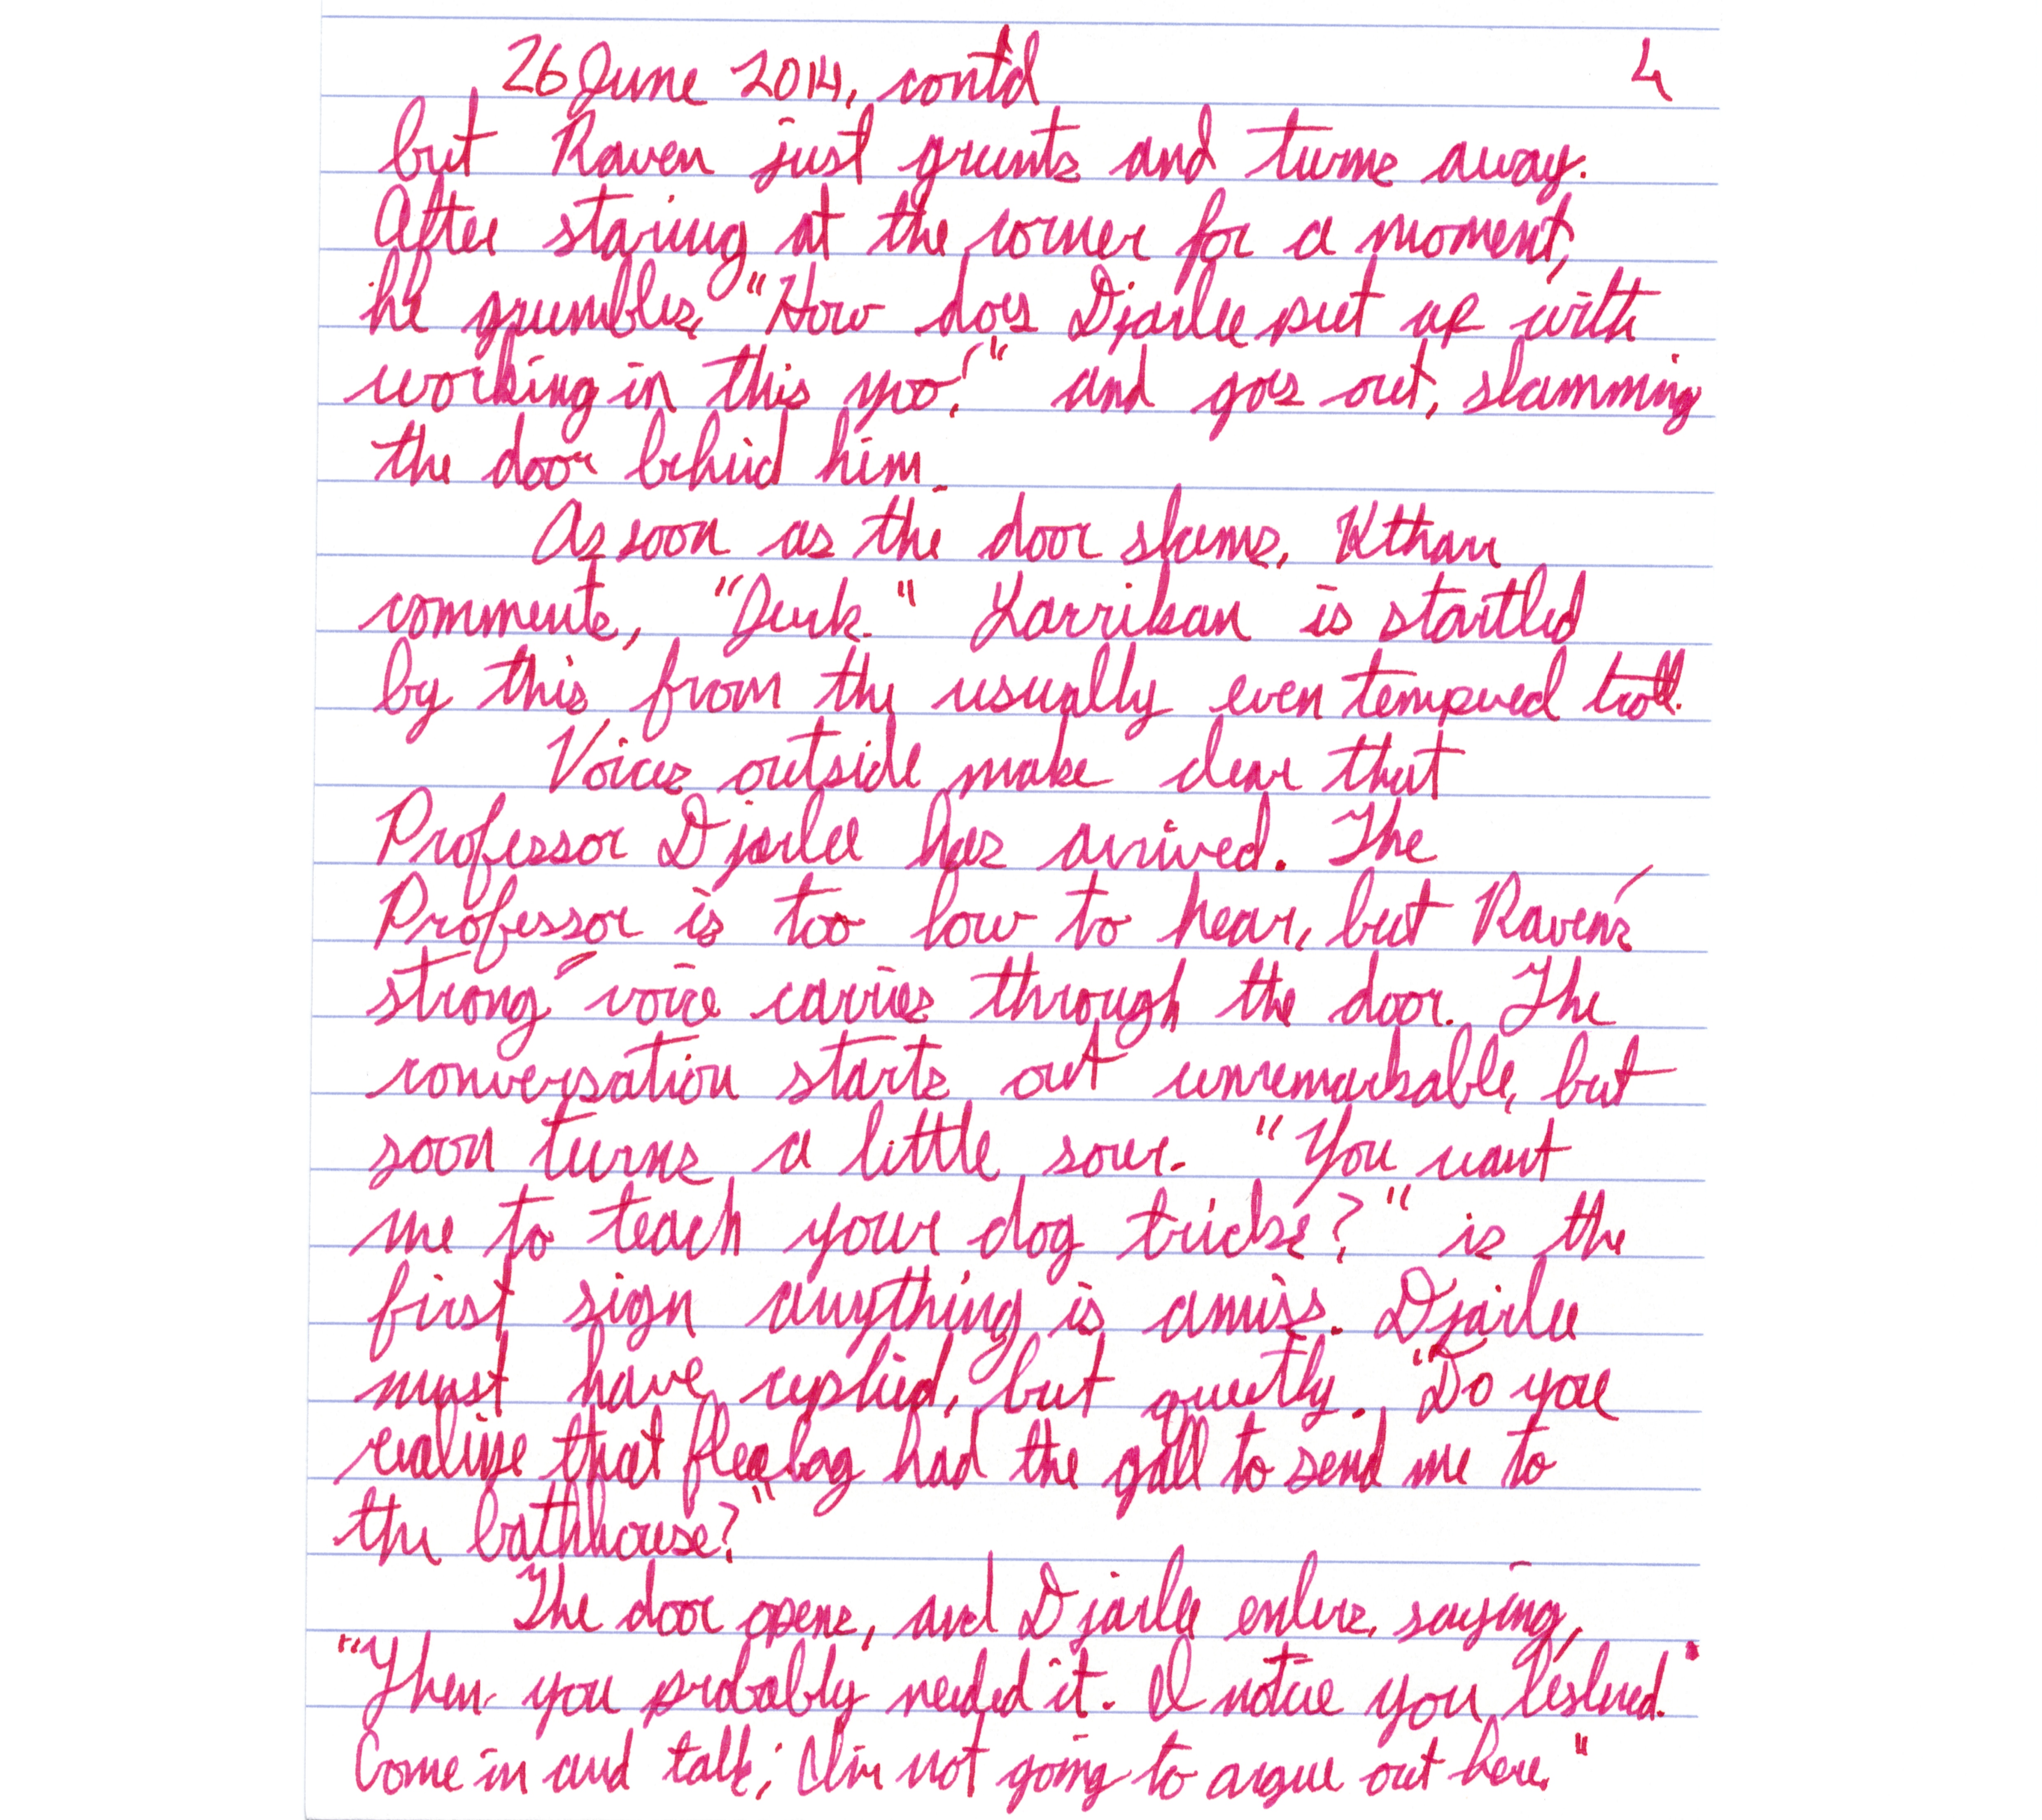 26 June 2014, cont'd 4
but Raven just grunts and turns away.
After staring at the corner for a moment,
he grumbles, "How does Djarlee put up with
working in this yoo!" and goes out, slamming
the door behind him.
As soon as the door slams, Ktharr
comments, "Jerk." Larrikan is startled
by this from the usually even tempered troll.
Voices outside make clear that
Professor Djarlee has arrived. The
Professor is too low to hear, but Raven's
strong voice carries through the door. The
conversation starts out unremarkable, but
soon turns a little sour. "You want
me to teach your dog tricks?" is the
first sign anything is amiss. Djarlee
must have replied, but quietly. "Do you
realize that fleabag had the gall to send me to
the bathhouse?"
The door opens, and Djarlee enters, saying,
"Then you probably needed it. I notice you listened.
Come in and talk; I'm not going to argue out here."